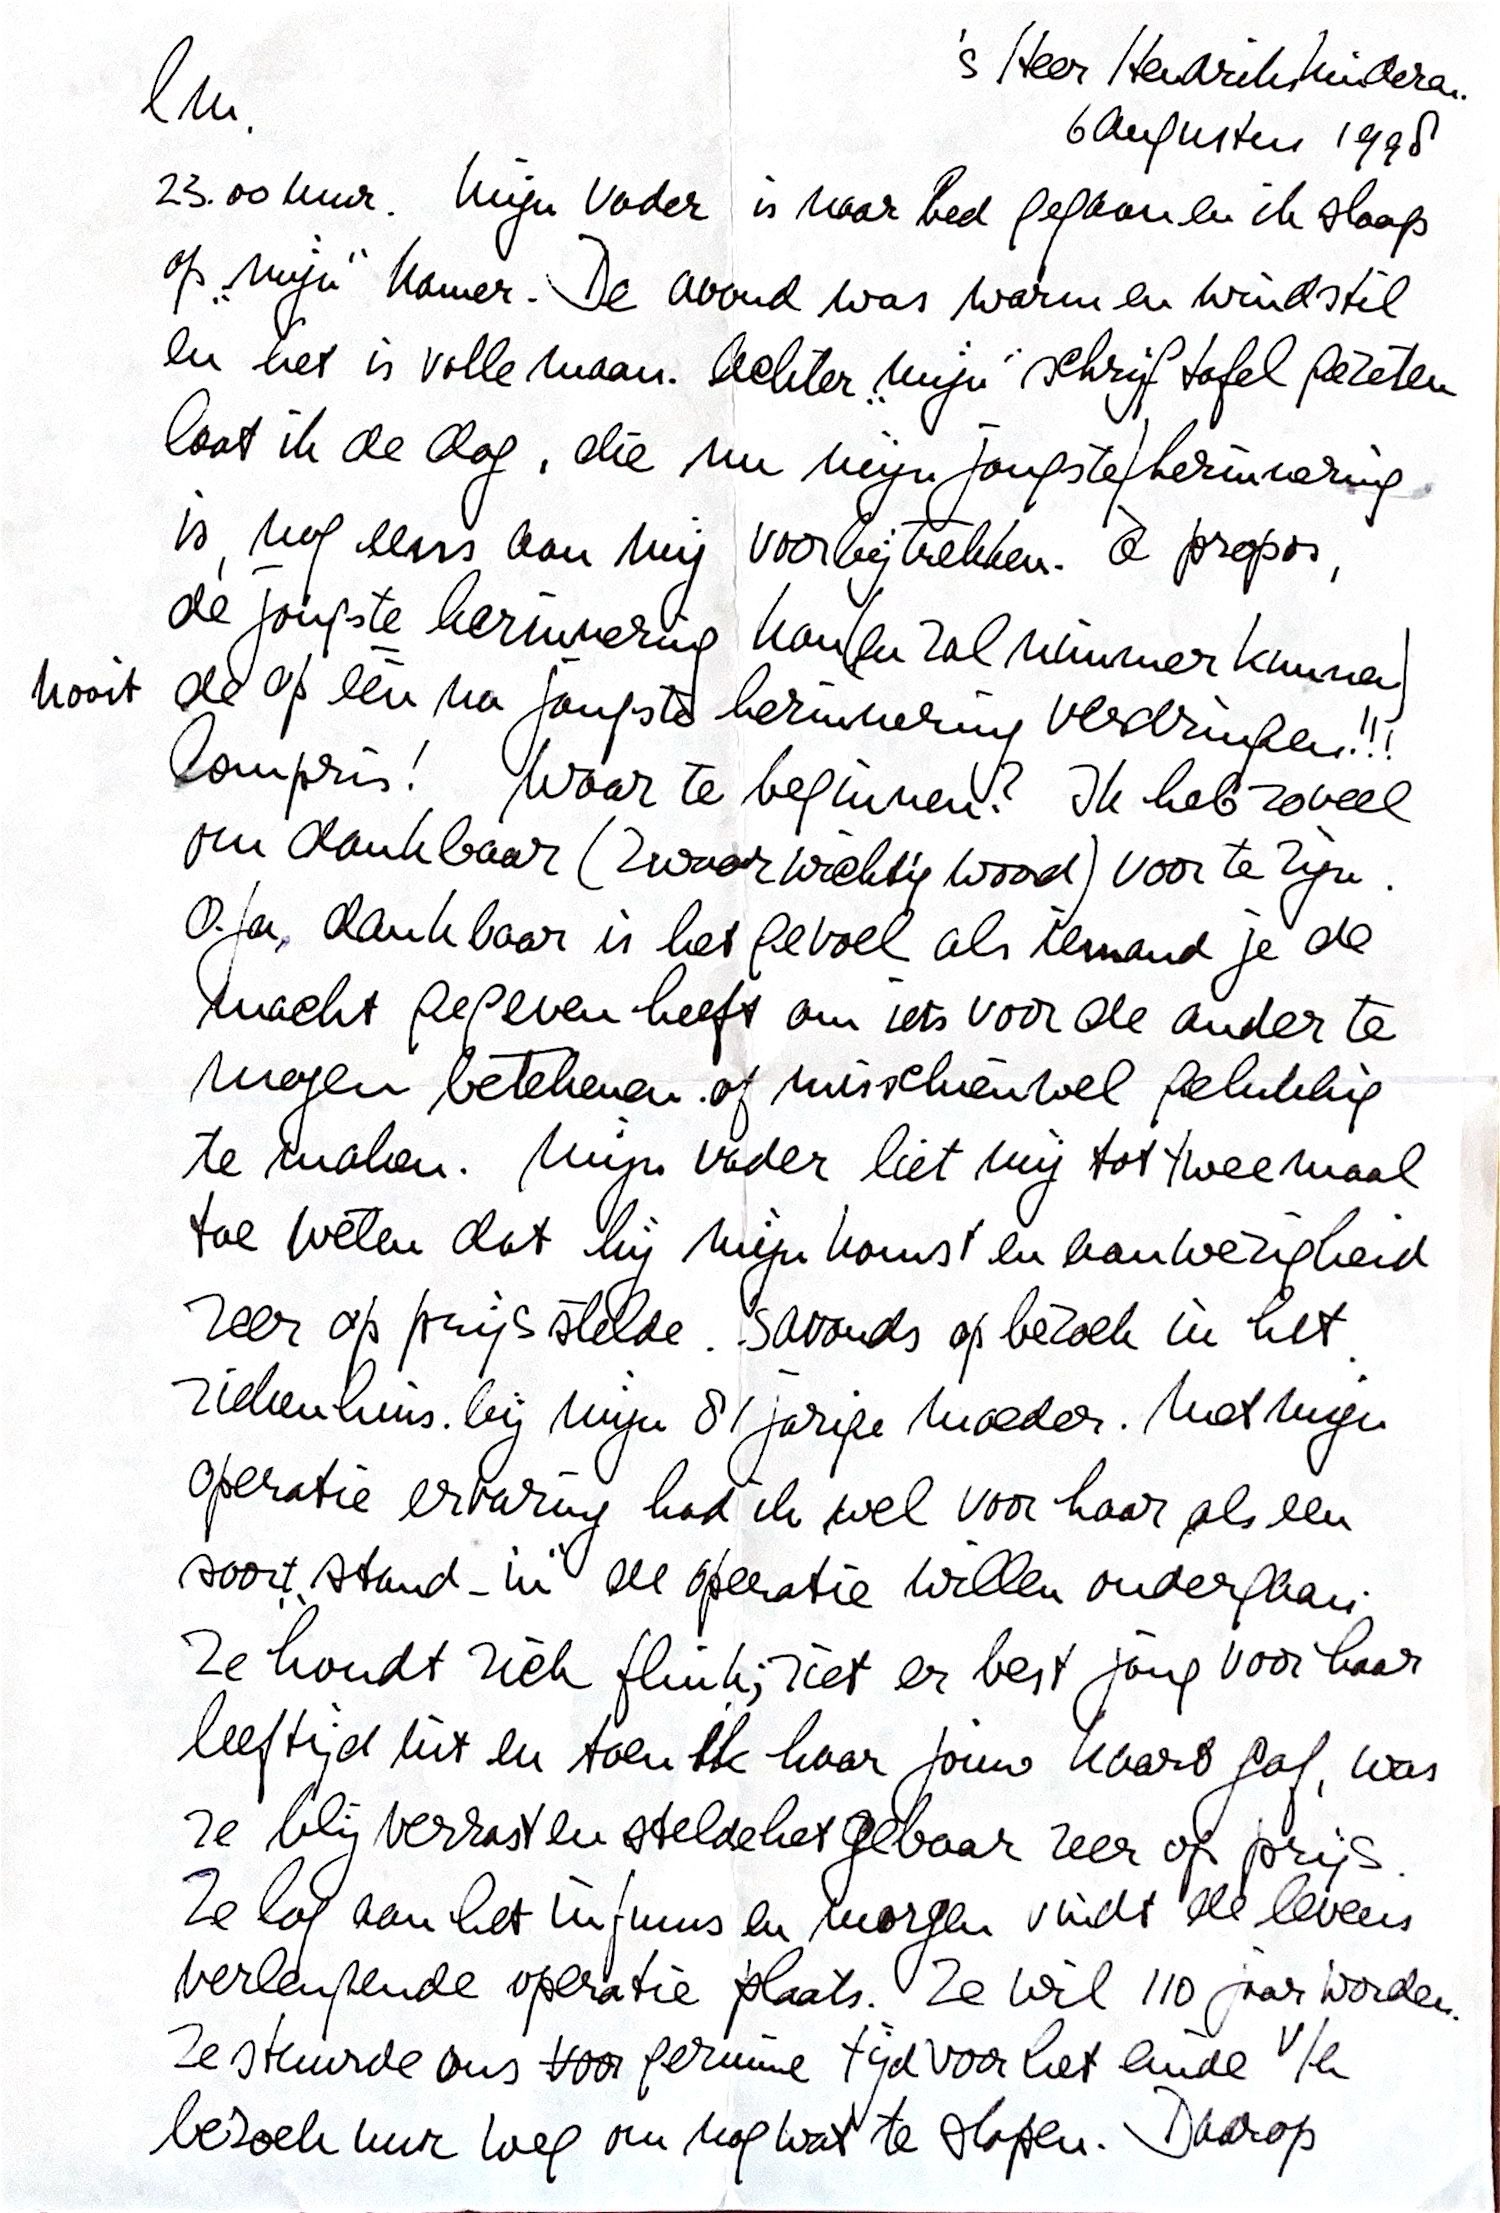 's Heer Hendrikskinderen.
6 Augustus 1998
l M.
23.00 uur. Mijn vader is naar bed gegaan en ik slaap
op „mijn" kamer. De avond was warm en windstil
en het is volle maan. Achter „mijn" schrijftafel gezeten
laat ik de dag, die nu mijn jongste herinnering
is, nog eens aan mij voorbijtrekken. à propos,
dé jongste herinnering kan (en zal nimmer kunnen)
nooit de op één na jongste herinnering verdringen!!!
Compris! Waar te beginnen? Ik heb zoveel
om dankbaar (zwaarwichtig woord) voor te zijn.
O ja, dankbaar is het gevoel als iemand je de
macht gegeven heeft om iets voor de ander te
mogen betekenen of misschien wel gelukkig
te maken. Mijn vader liet mij tot tweemaal
toe weten dat hij mijn komst en aanwezigheid
zeer op prijs stelde. 's avonds op bezoek in het
ziekenhuis bij mijn 81 jarige moeder. Met mijn
operatie ervaring had ik wel voor haar als een
soort „stand-in" de operatie willen ondergaan.
Ze houdt zich flink; ziet er best jong voor haar
leeftijd uit en toen ik haar jouw kaars gaf, was
ze blij verrast en stelde het gebaar zeer op prijs.
Ze lag aan het infuus en morgen vindt de levens
verlengende operatie plaats. Ze wil 110 jaar worden.
Ze stuurde ons voor geruime tijd voor het einde v/h
bezoekuur weg om nog wat te slapen. Daarop